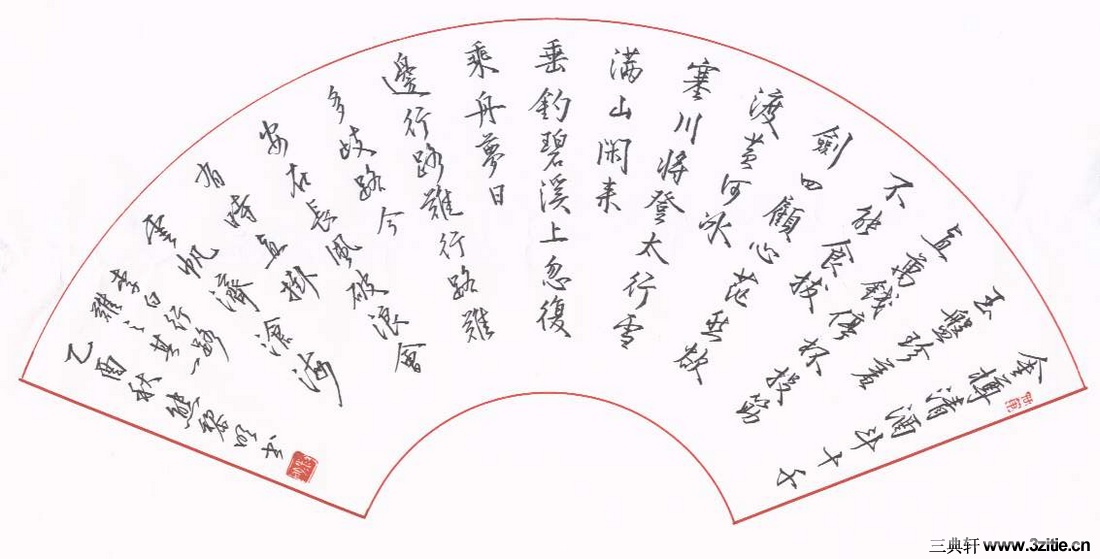 金樽清酒斗十千
玉盤珍羞
直萬錢停杯投箸
不能食拔
劍四顧心茫然欲
渡黃河冰
塞川將登太行雪
满山闲来
垂釣碧溪上忽復
乘舟夢日
邊行路難行路難
多歧路今
安在長風破浪會
有時直掛
雲帆濟滄海
李白行路
難之其一
乙酉秋
三典轩 www.3zitie.cn